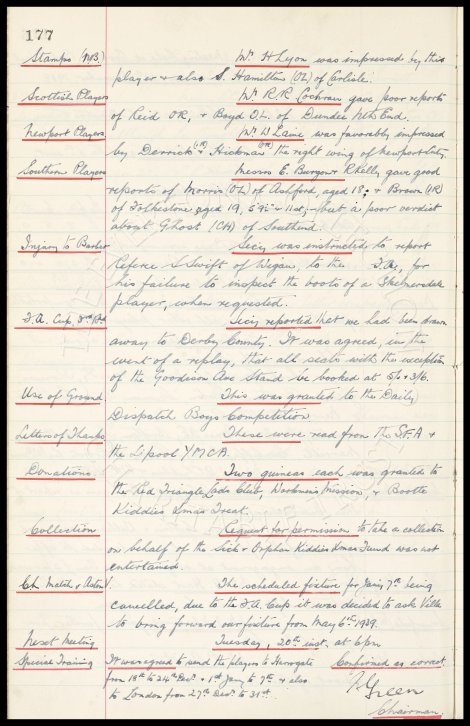 177
Stamps (NB) Mr. H Lyon was impressed by this
player & also S. Hamilton (OL) of Carlisle.
Scottish Players Mr R.R. Cochran gave poor reports
of Reid OR, & Boyd OL. of Dundee Nth End.
Newport Players Mr W Laine was favorably impressed
by Derrick (IR) & Hickman (OR) the right wing of Newport Coty.
Southern Players Messrs E. Burgon & R Kelly gave good
reports of Morris (OL) of Ashford, aged 18; & Brown (IR)
of Folkestone aged 19, 5'9½" 11st;- but a poor verdict
about Ghost (CH) of Southend.
Injury to Barber Secy was instructed to report
Referee S Swift of Wigan, to the F.A., for
his failure to inspect the boots of a Skelmersdale
player, when requested.
F.A. Cup, 3rd Rd Secy reported that we had been drawn
away to Derby County. It was agreed, in the
event of a replay, that all seats with the exception
of the Goodison Ave Stand be booked at 5/- & 3/6.
Use of Ground This was granted to the Daily
Dispatch Boys Competition.
Letters of Thanks These were read from the S.F.A &
the L'pool YMCA.
Donations Two guineas each was granted to
the Red Triangle Lads Club, Workmens Mission, & Bootle
Kiddies Xmas Treat.
Collection Request for permission to take a collection
on behalf of the Sick & Orphan Kiddies Xmas Fund was not
entertained.
Ch. Match v Aston V. The scheduled fixture for Jany 7th being
cancelled, due to the F.A. Cup it was decided to ask Villa
to bring forward our fixture from May 6th 1939.
Next Meeting Tuesday, 20th inst. at 6pm
Special Training It was agreed to send the players to Harrogate Confirmed as correct
from 18th to 24th Decr. & 1st Jany to 7th & also
to London from 27th Decr. to 31st. Green
Chairman.